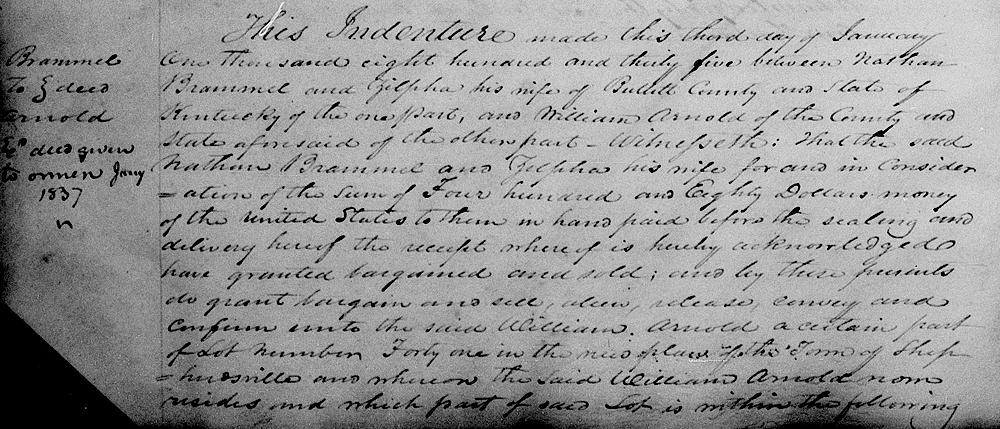 This Indenture made this third day of January
Brammel
to } deed
Arnold
deed given
to owner Jany
1837
One thousand eight hundred and thirty five between Nathan
Brammel and Zilpha his wife of Bullitt County and State of
Kentucky of the one part, and William Arnold of the County and
State aforesaid of the other part - Witnesseth: That the said
Nathan Brammel and Zilpha his wife for and in consider
=ation of the sum of Four hundred and Eighty Dollars money
of the United States to them in hand paid before the sealing and
delivery hereof the receipt whereof is hereby acknowledged
have granted bargained and sold; and by these presents
do grant bargain and sell, alien, release, convey and
confirm unto the said William. Arnold a certain part
of Lot number Forty one in the new plan of the Town of Shep
=herdsville and whereon the said William Arnold now
resides and which part of said Lot is within the following